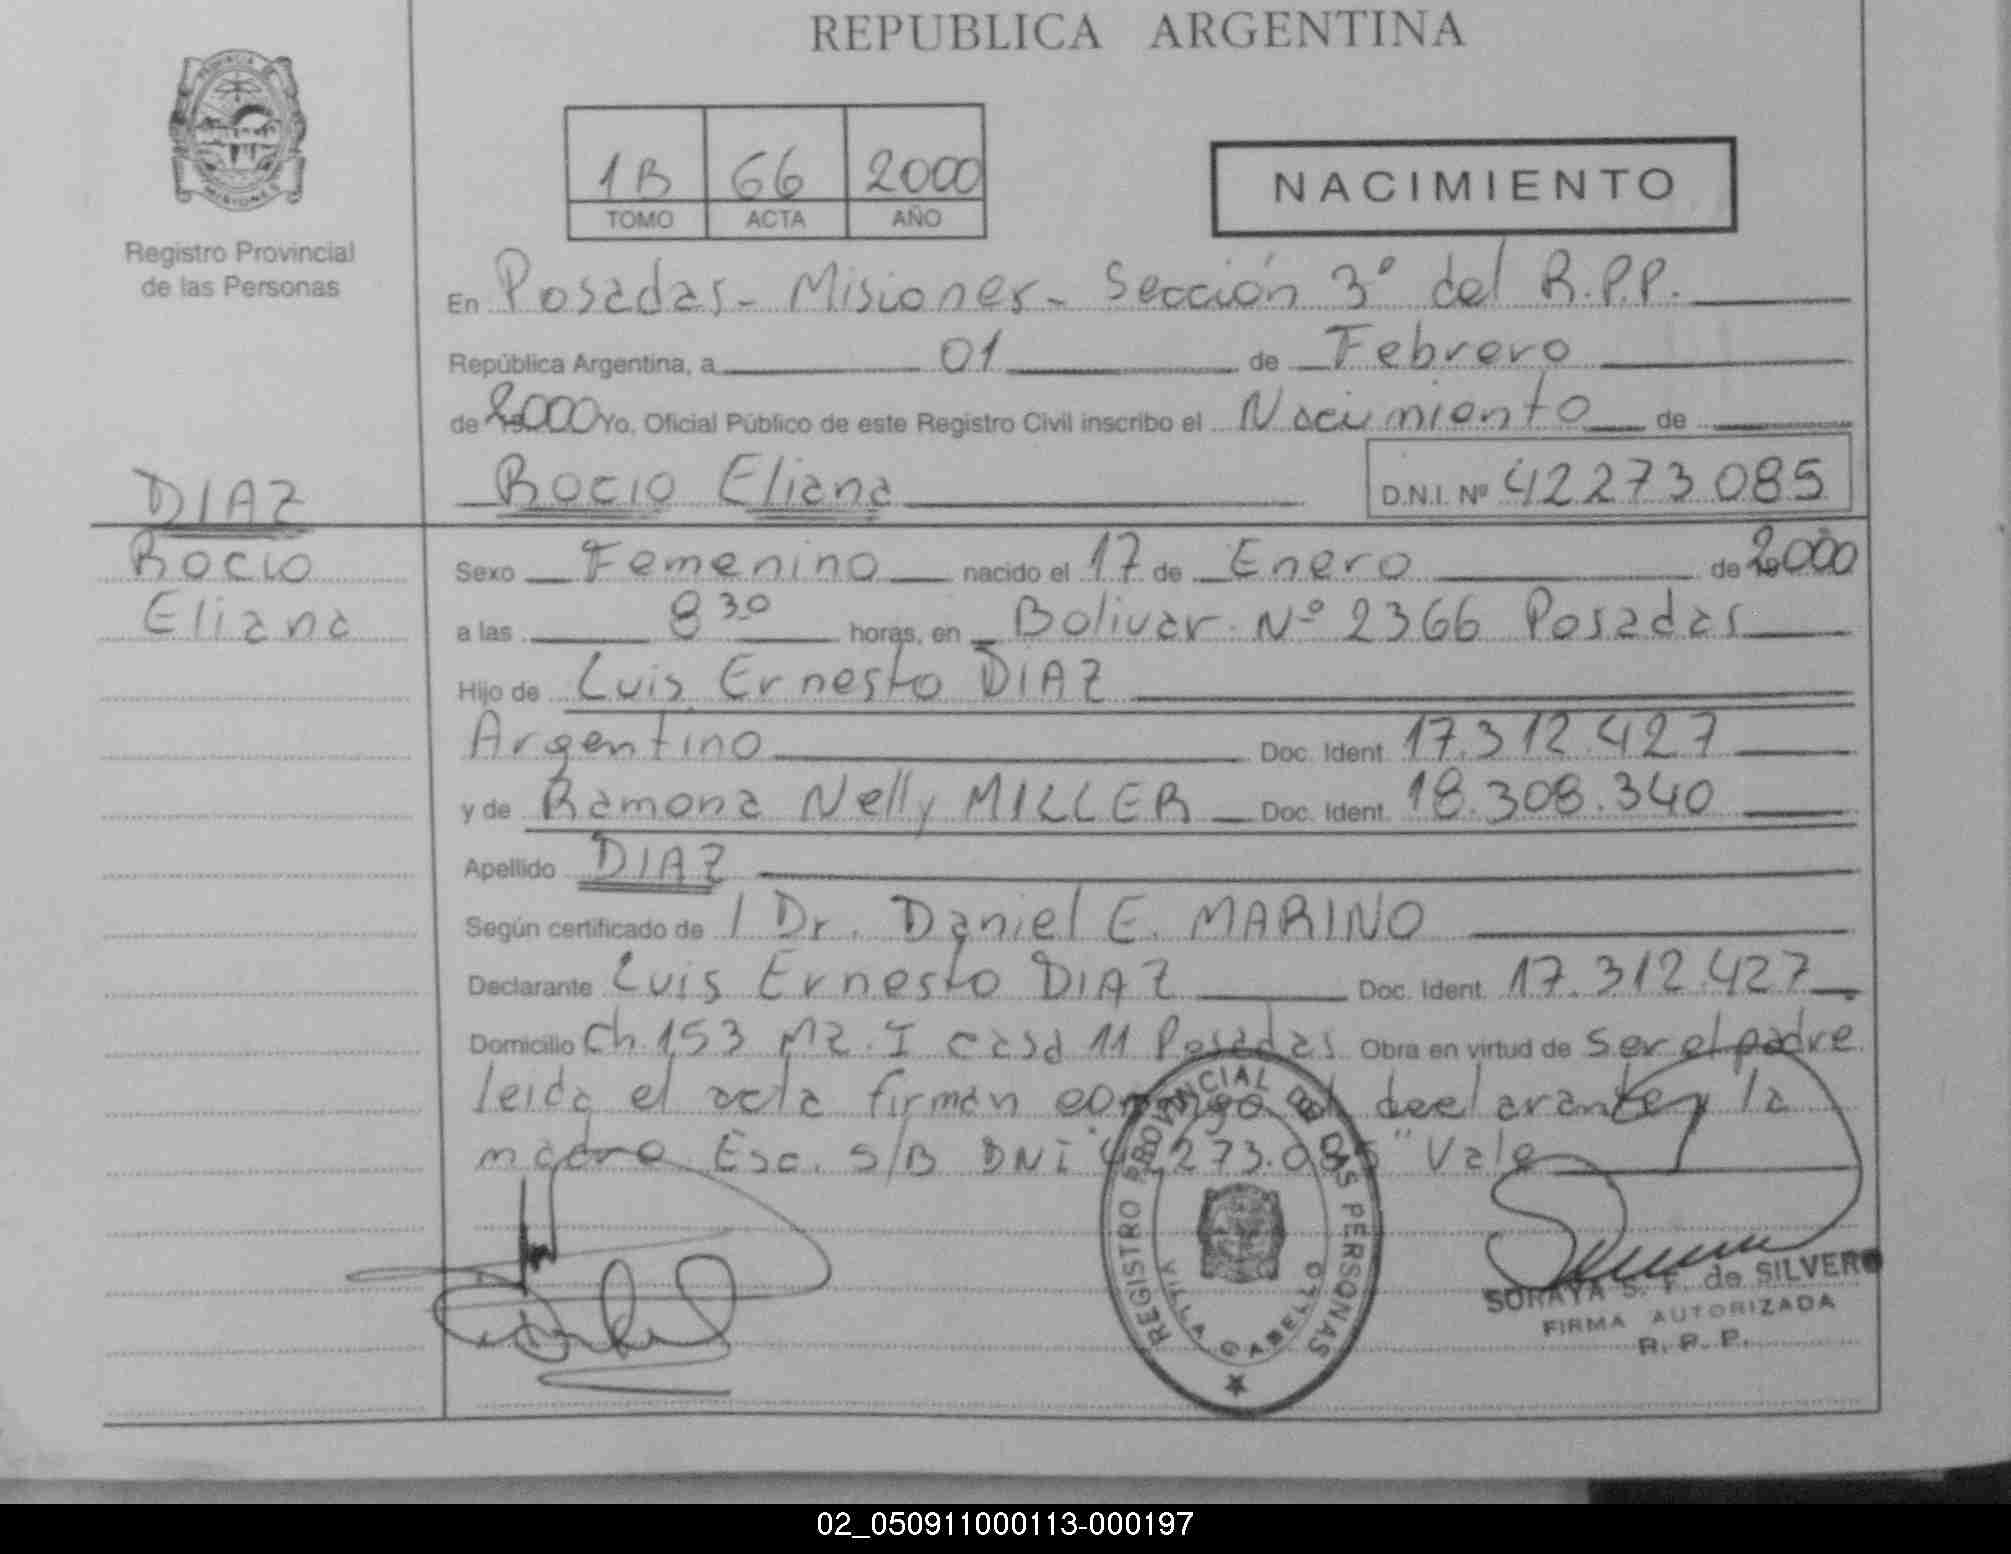 REPUBLICA ARGENTINA
PROVINCIA DE
MISIONES
Registro Provincial
de las Personas
1B 66 2000
TOMO ACTA AÑO
NACIMIENTO
En Posadas - Misiones - Sección 3° del R.P.P.
República Argentina, a 01 de Febrero
de 2000 Yo, Oficial Público de este Registro Civil inscribo el Nacimiento de
Rocio Eliana D.N.I. Nº 42273085
DIAZ
Rocio
Eliana
Sexo Femenino nacido el 17 de Enero de 2000
a las 8 30 horas, en Bolivar Nº 2366 Posadas
Hijo de Luis Ernesto DIAZ
Argentino Doc. Ident. 17.312.427
y de Ramona Nelly MILLER Doc. Ident. 18.308.340
Apellido DIAZ
Según certificado de / Dr. Daniel E. MARINO
Declarante Luis Ernesto DIAZ Doc. Ident. 17.312.427
Domicilio Ch. 153 Mz. I casa 11 Posadas Obra en virtud de ser el padre
leida el acta firman conmigo el declarante y la
madre. Esc. S/B DNI "42.273.085" Vale
REGISTRO PROVINCIAL DE LAS PERSONAS
VILLA CABELLO
SORAYA S. F. de SILVERO
FIRMA AUTORIZADA
R. P. P.
02_050911000113-000197